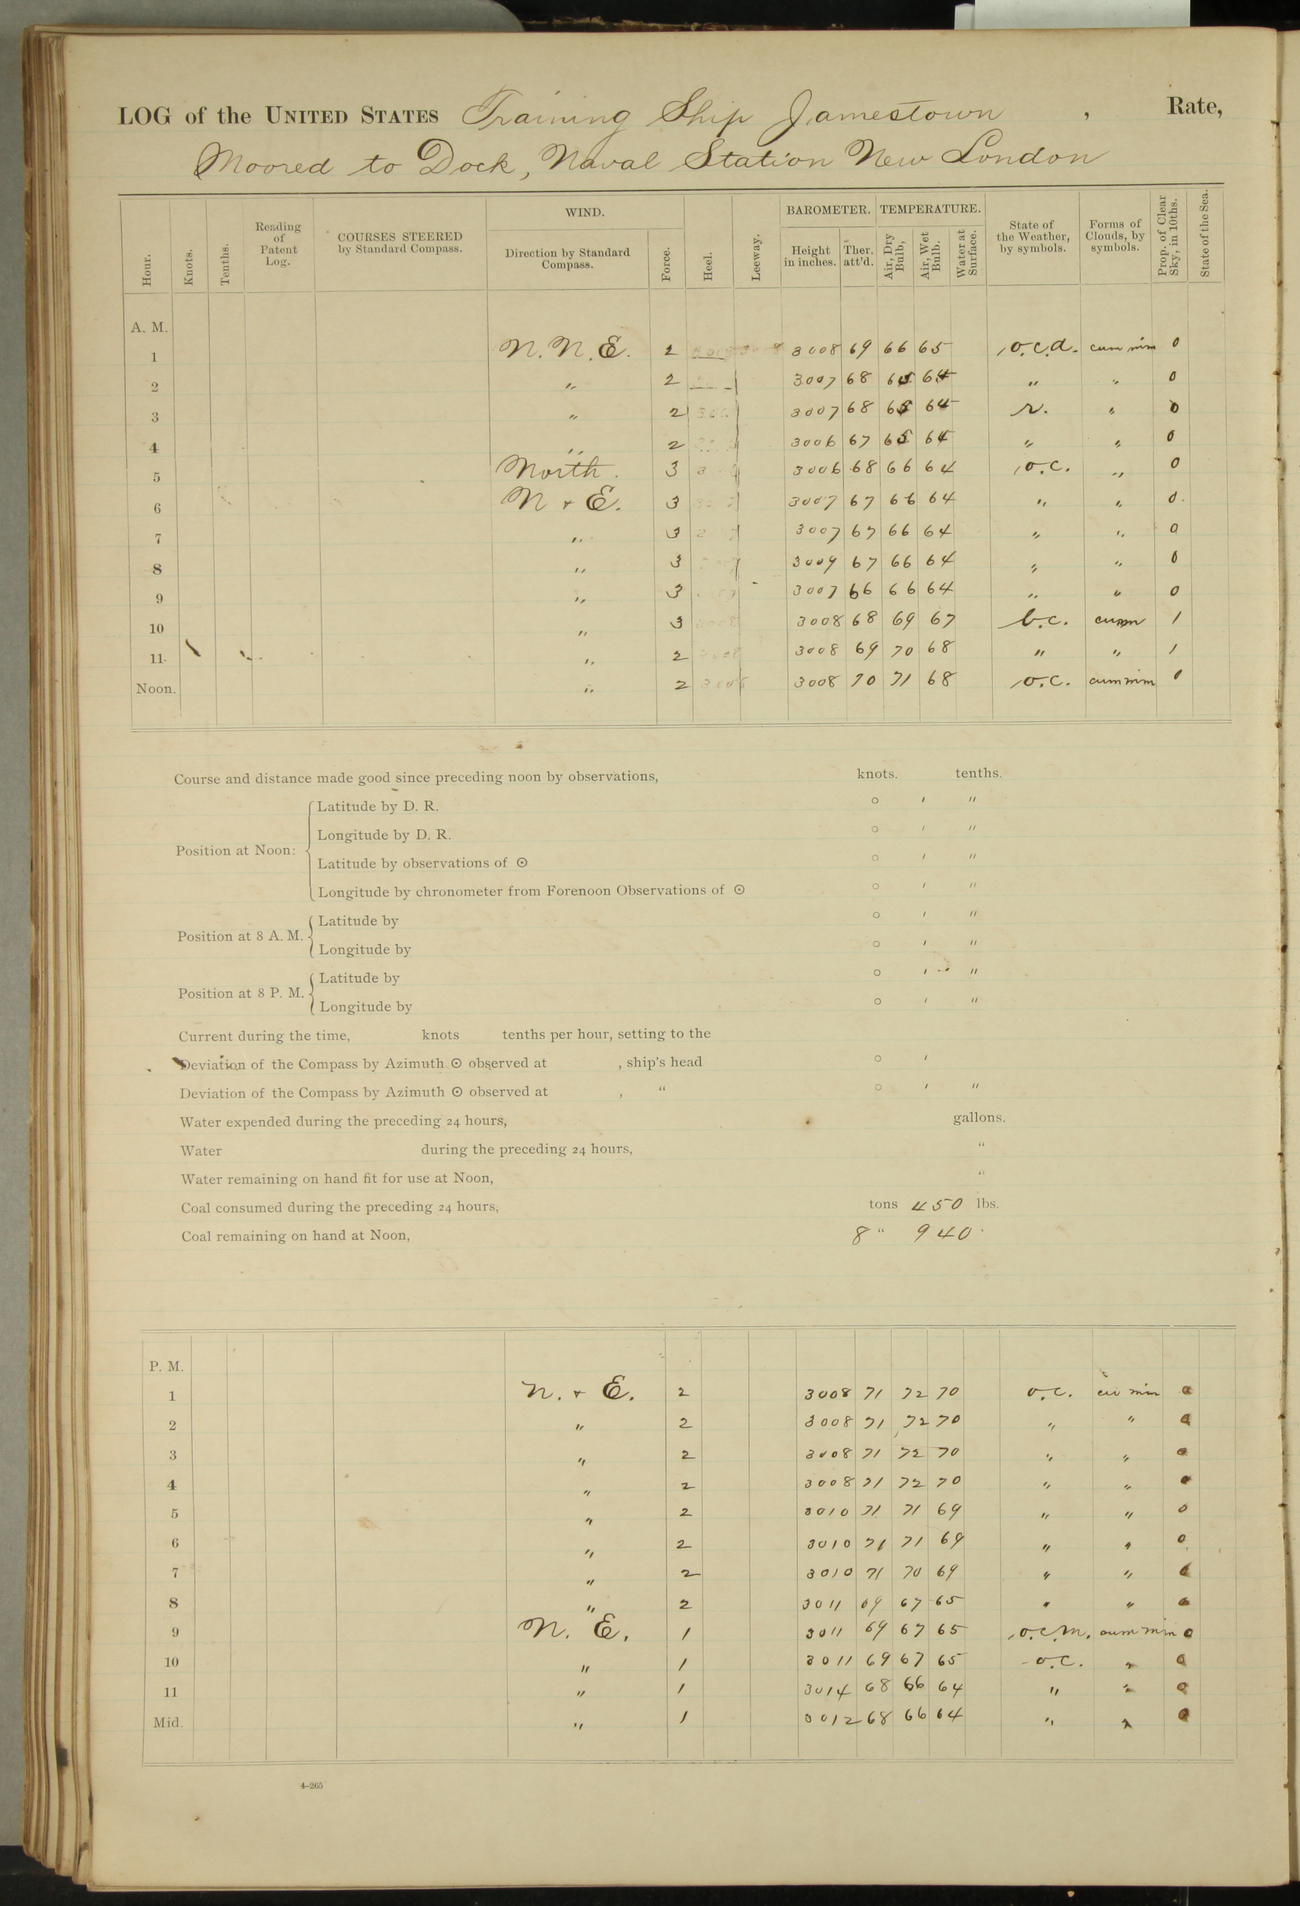 LOG of the UNITED STATES Training Ship Jamestown , Rate,
Moored to Dock, Naval Station New London
Hour. Knots. Tenths. Reading of Patent Log. COURSES STEERED by Standard Compass. WIND. Direction by Standard Compass. Force. Heel. Leeway. BAROMETER. Height in inches. Ther. att'd. TEMPERATURE. Air, Dry Bulb, Air, Wet Bulb. Water at Surface. State of the Weather, by symbols. Forms of Clouds, by symbols. Prop. of Clear Sky, in 10ths. State of the Sea.
A. M.
1 N. N. E. 2 3008 69 66 65 o.c.d. cum nim 0
2 " 2 3007 68 65 64 " " 0
3 " 2 3007 68 65 64 r. " 0
4 " 2 3006 67 65 64 " " 0
5 North. 3 3006 68 66 64 o.c. " 0
6 N + E. 3 3007 67 66 64 " " 0
7 " 3 3007 67 66 64 " " 0
8 " 3 3009 67 66 64 " " 0
9 " 3 3007 66 66 64 " " 0
10 " 3 3008 68 69 67 b.c. cum 1
11 " 2 3008 69 70 68 " " 1
Noon. " 2 3008 70 71 68 o.c. cum nim 0
Course and distance made good since preceding noon by observations, knots. tenths.
Position at Noon: Latitude by D. R. ° ' "
Longitude by D. R. ° ' "
Latitude by observations of ☉ ° ' "
Longitude by chronometer from Forenoon Observations of ☉ ° ' "
Position at 8 A. M. Latitude by ° ' "
Longitude by ° ' "
Position at 8 P. M. Latitude by ° ' "
Longitude by ° ' "
Current during the time, knots tenths per hour, setting to the
Deviation of the Compass by Azimuth ☉ observed at , ship's head ° '
Deviation of the Compass by Azimuth ☉ observed at , " ° ' "
Water expended during the preceding 24 hours, gallons.
Water during the preceding 24 hours, "
Water remaining on hand fit for use at Noon, "
Coal consumed during the preceding 24 hours, tons 450 lbs.
Coal remaining on hand at Noon, 8 " 940
P. M.
1 N. + E. 2 3008 71 72 70 o.c. cu nim 0
2 " 2 3008 71 72 70 " " 0
3 " 2 3008 71 72 70 " " 0
4 " 2 3008 71 72 70 " " 0
5 " 2 3010 71 71 69 " " 0
6 " 2 3010 71 71 69 " " 0
7 " 2 3010 71 70 69 " " 0
8 " 2 3011 69 67 65 " " 0
9 N. E. 1 3011 69 67 65 o.c.m. cum nim 0
10 " 1 3011 69 67 65 o.c. " 0
11 " 1 3014 68 66 64 " " 0
Mid. " 1 3012 68 66 64 " " 0
4-265